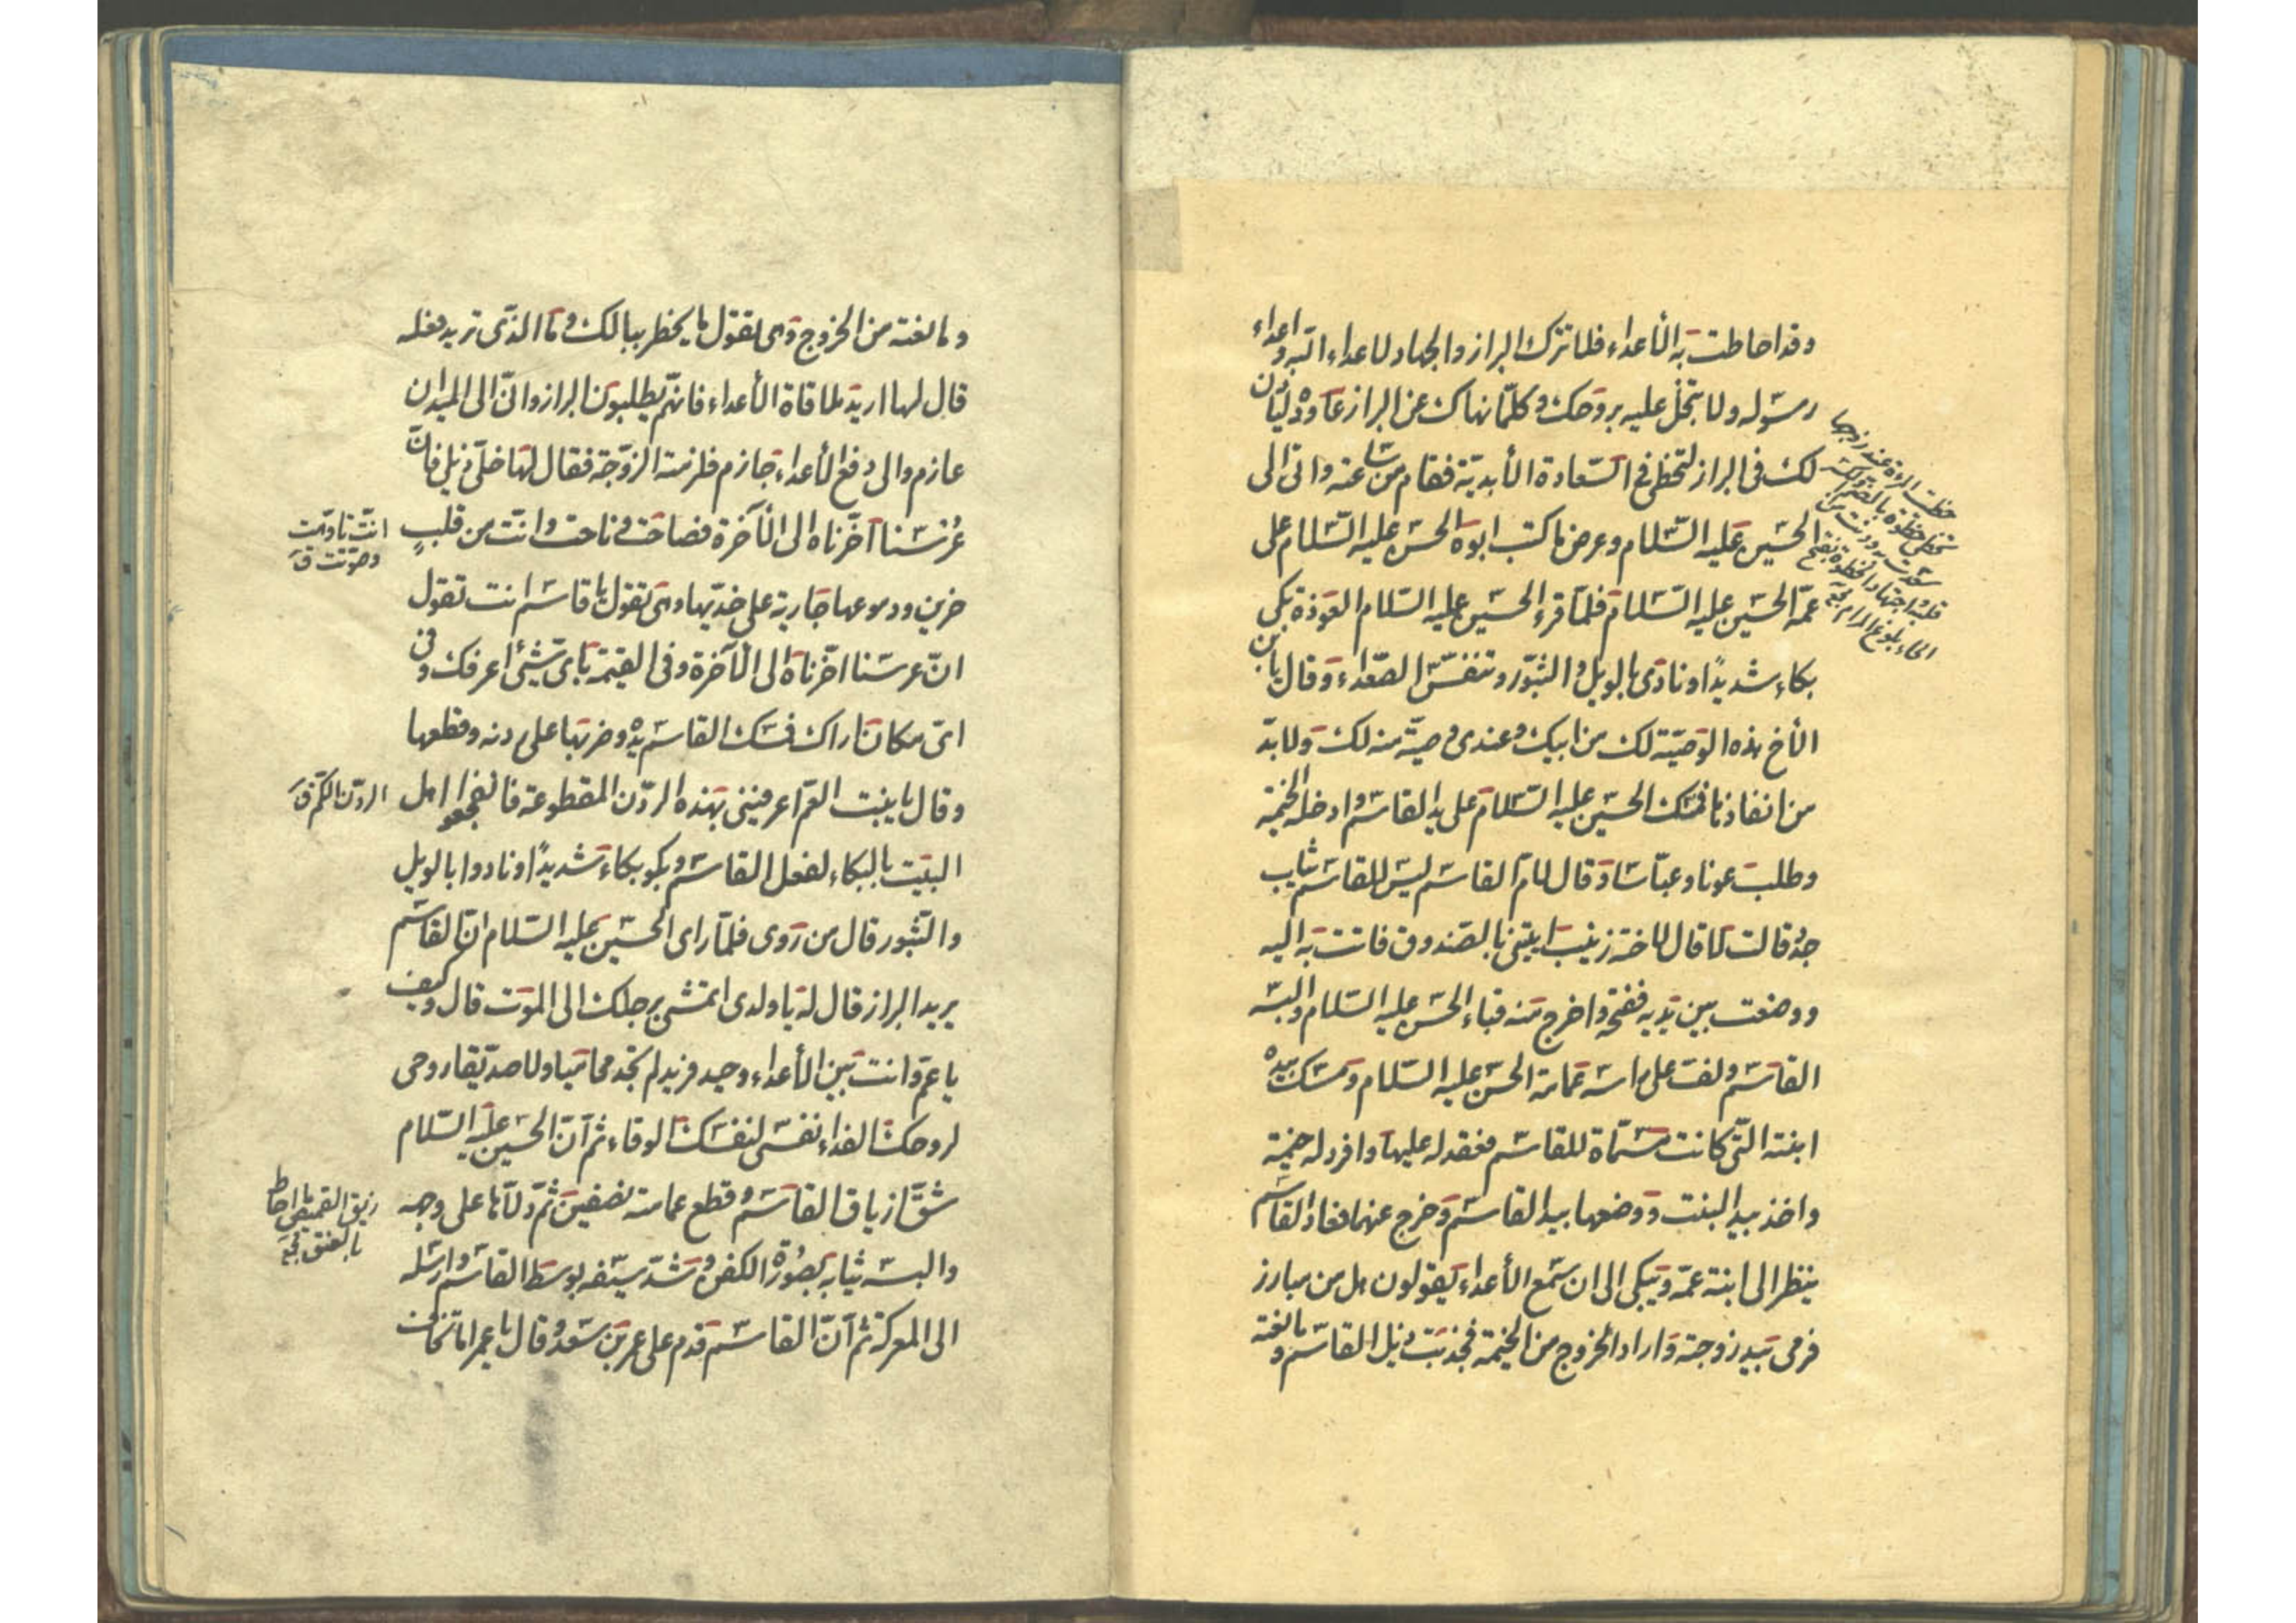 وقد احاطت به الأعداء فلا تترك البراز والجهاد لاعداء الله واعداء
رسوله ولا تبخل عليه بروحك وكلما نهاك عن البراز عاوده ليأذن
لك فى البراز لتحظى فى السّعادة الأبديّة فقام من ساعته واتى الى
الحسين عليه السّلام وعرض ما كتب ابوه الحسن عليه السّلام على
عمّه الحسين عليه السّلام فلمّا قرء الحسين عليه السّلام العوذة بكى
بكاء شديدًا ونادى بالويل والثّبور وتنفّس الصّعداء وقال يا بن
الأخ هذه الوصيّة لك من ابيك وعندى وصيّة منه لك ولا بدّ
من انفاذها فمسك الحسين عليه السّلام على يد القاسم وادخله الخيمة
وطلب عونا وعبّاسا وقال لأمّ القاسم ليس للقاسم ثياب
جدد قالت لا قال لاخته زينب ايتينى بالصّندوق فاتت به اليه
ووضعت بين يديه ففتحه واخرج منه قباء الحسن عليه السّلام والبسه
القاسم ولفّ على راسه عمامة الحسن عليه السّلام ومسك بيده
ابنته الّتى كانت مسمّاة للقاسم فعقد له عليها وافرد له خيمة
واخذ بيد البنت ووضعها بيد القاسم وخرج عنهما فعاد القاسم
ينظر الى ابنة عمّه ويبكى الى ان سمع الأعداء يقولون هل من مبارز
فرمى بيد زوجته واراد الخروج من الخيمة فجذبت ذيل القاسم ومانعته
حظيت المراة عند زوجها
تحظى حظوة بالضم والكسر
سعدت به ودنت من
قلبه واحبّها والخطوة بفتح
الحاء بلوغ المرام
ومانعته من الخروج وهى تقول ما يخطر ببالك وما الّذى تريد تفعله
قال لها اريد ملاقاة الأعداء فانّهم يطلبون البراز وانّى الى الميدان
عازم والى دفع الأعداء جازم فلزمته الزّوجة فقال لها خلّى ذيلى فانّ
عرسنا اخّرناه الى الآخرة فصاحت وناحت وانّت من قلب
انّت تاوّهت
وصوّتت ق
حزين ودموعها جارية على خدّيها وهى تقول يا قاسم انت تقول
انّ عرسنا اخّرناه الى الآخرة وفى القيمة باى شئى اعرفك وفى
اىّ مكان اراك فمسك القاسم يده وضربها على ردنه وقطعها
وقال يا بنت العمّ اعرفينى بهذه الردن المقطوعة فانفجعوا اهل
الردن الكم ق
البيت بالبكاء لفعل القاسم وبكو بكاء شديدًا ونادوا بالويل
والثّبور قال من روى فلمّا راى الحسين عليه السّلام انّ القاسم
يريد البراز قال له يا ولدى اتمشى برجلك الى الموت قال وكيف
يا عمّ وانت بين الأعداء وحيد فريد لم تجد محاميا ولا صديقا روحى
لروحك الفداء نفسى لنفسك الوقاء ثم انّ الحسين عليه السّلام
شقّ ازياق القاسم وقطع عمامته نصفين ثمّ دلّاها على وجهه
زيق القميص ما احاط
بالعنق
والبسه ثيابه بصورة الكفن وشدّ سيفه بوسط القاسم وارسله
الى المعركة ثم انّ القاسم قدم على عمر بن سعد وقال يا عمر اما تخاف